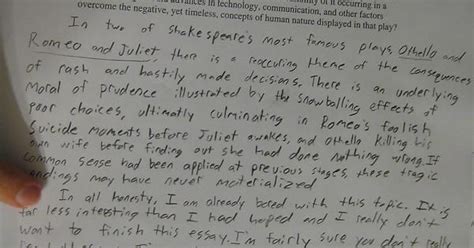 of it occurring in a
advances in technology, communication, and other factors
overcome the negative, yet timeless, concepts of human nature displayed in that play?
In two of Shakespeare's most famous plays, Othello and
Romeo and Juliet, there is a reoccuring theme of the consequences
of rash and hastily made decisions. There is an underlying
moral of prudence illustrated by the snowballing effects of
poor choices, ultimatly culminating in Romeo's foolish
suicide moments before Juliet awakes, and Othello killing his
own wife before finding out she had done nothing wrong. If
common sense had been applied at previous stages, these tragic
endings may have never materialized.
In all honesty, I am already bored with this topic. It is
far less interesting than I had hoped and I really don't
want to finish this essay. I'm fairly sure you don't really